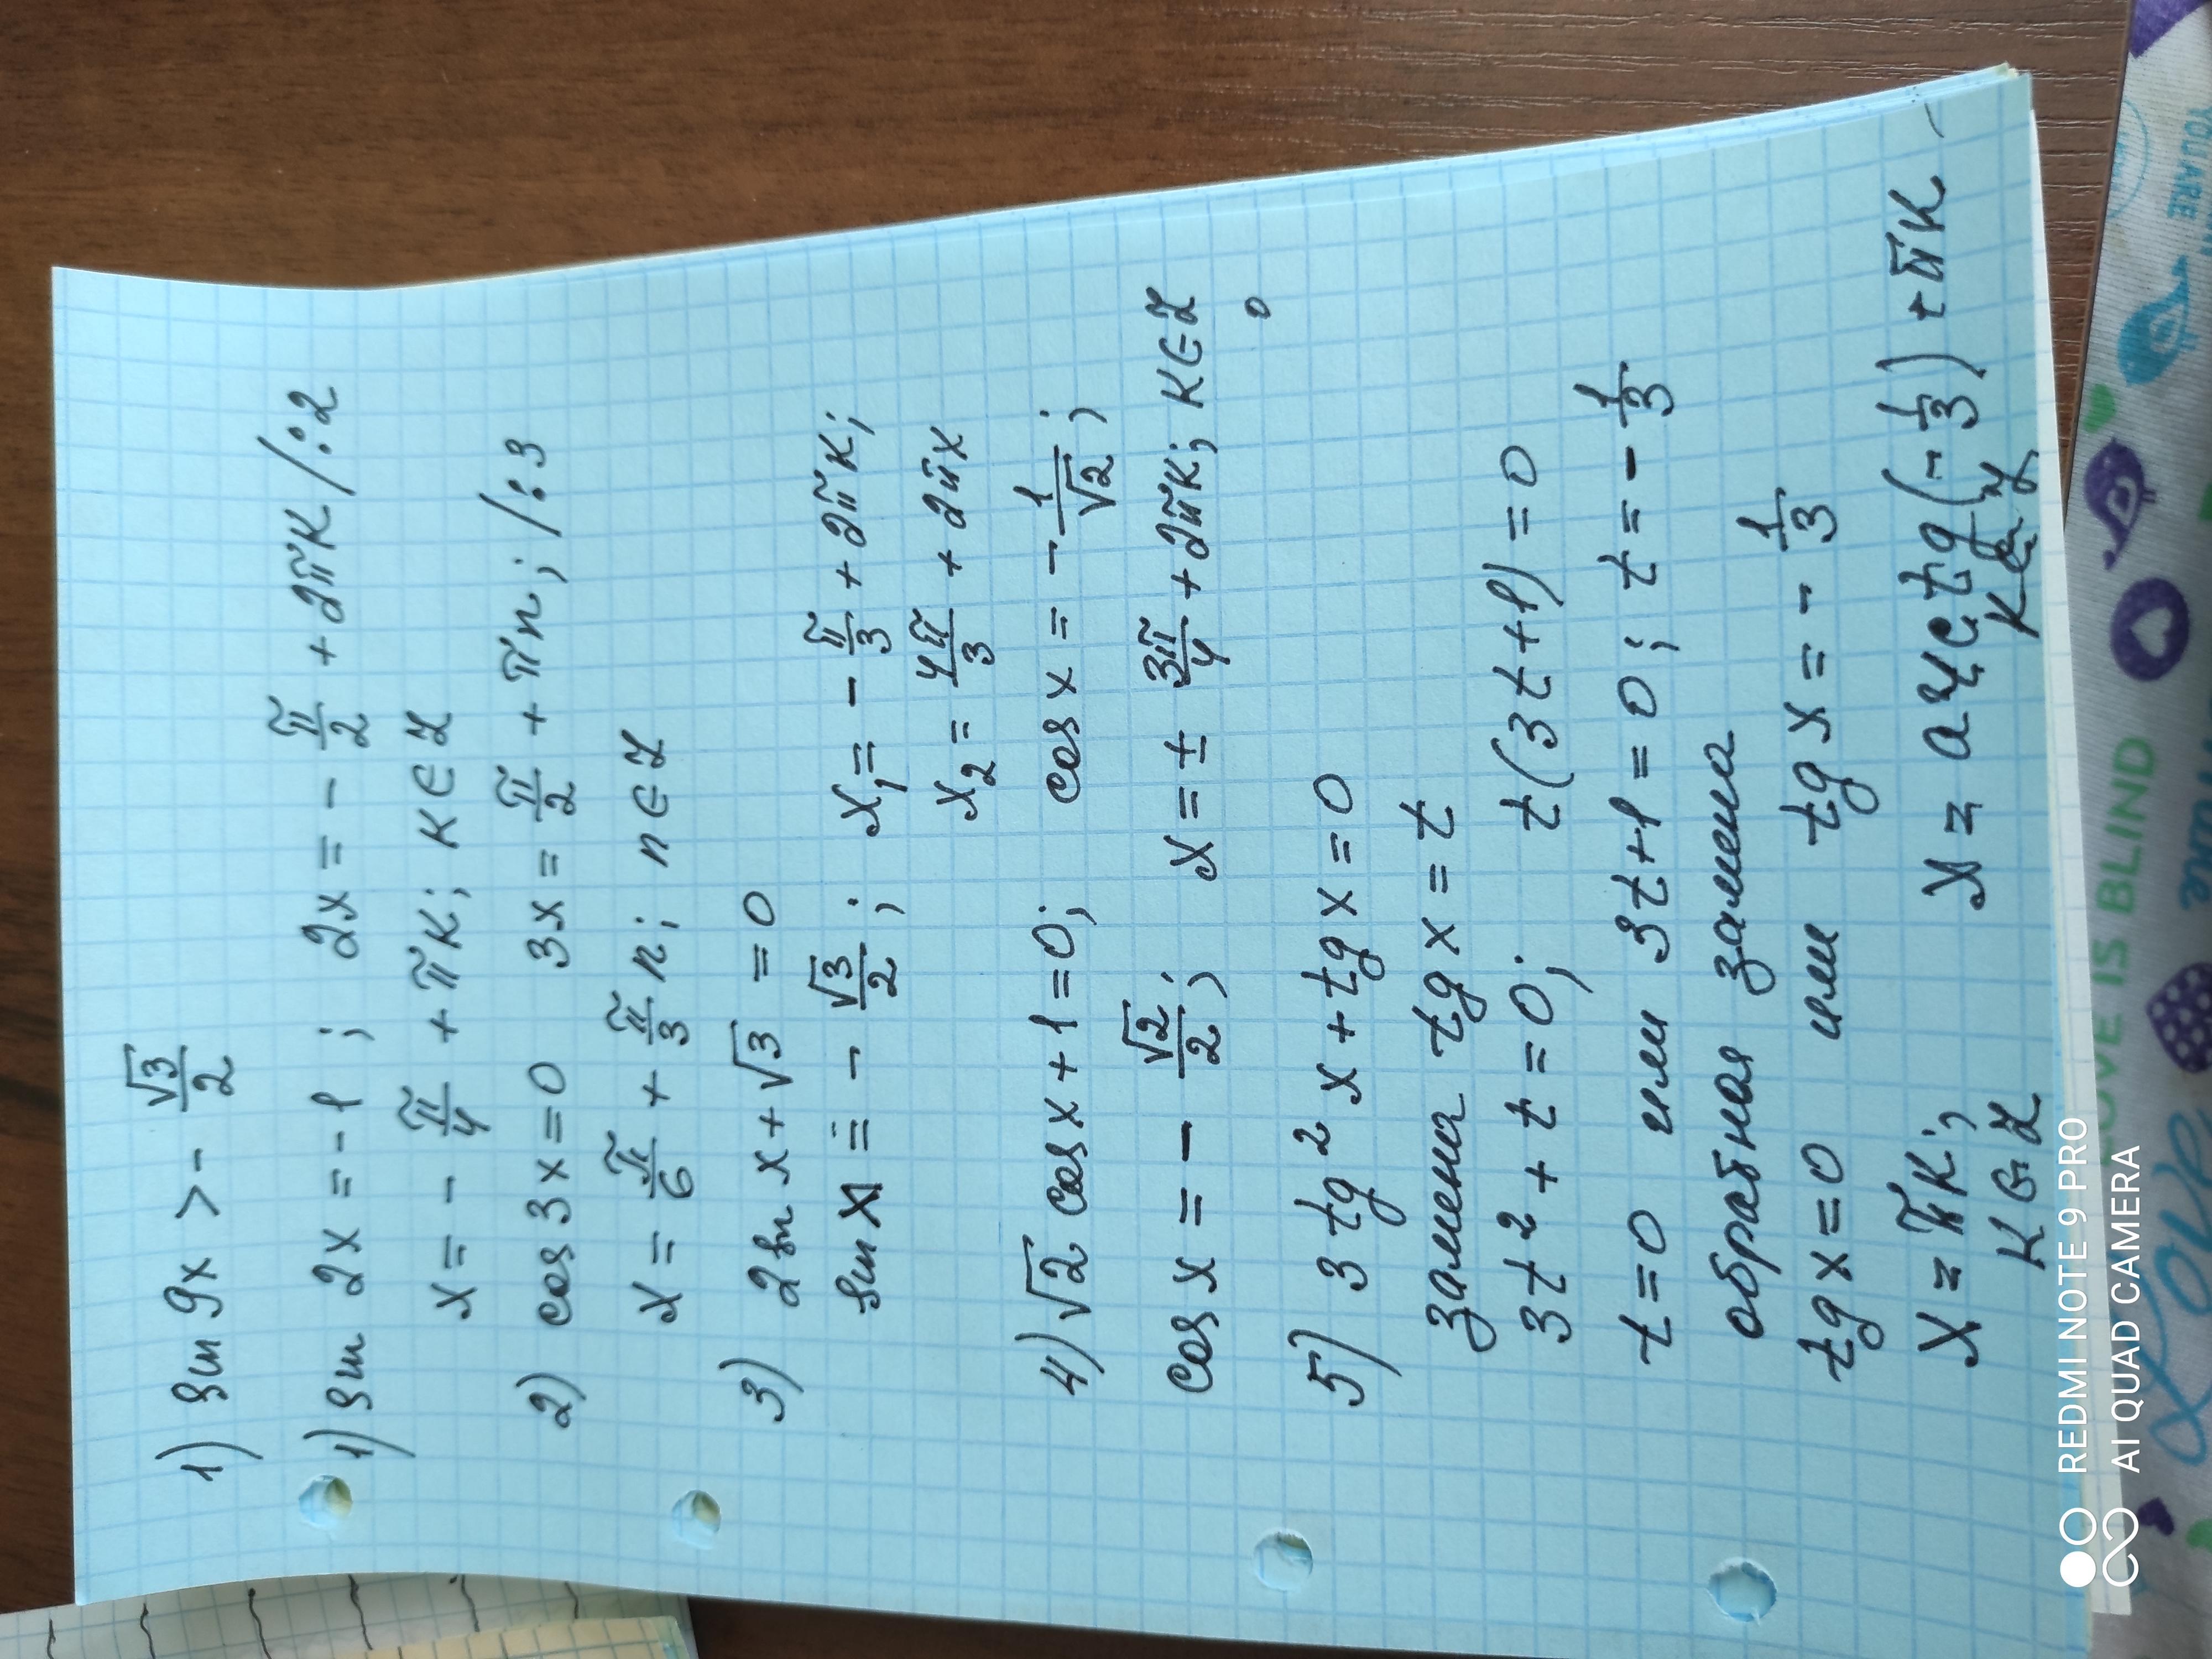 1) sin 9x > - √3/2
1) sin 2x = -1 ; 2x = - π/2 + 2πк /:2
x = - π/4 + πк; к ∈ Z
2) cos 3x = 0 3x = π/2 + πn; /:3
x = π/6 + π/3 n; n ∈ Z
3) 2 sin x + √3 = 0
sin x = - √3/2; x₁ = - π/3 + 2πк;
x₂ = 4π/3 + 2πк
4) √2 cos x + 1 = 0; cos x = - 1/√2;
cos x = - √2/2; x = ± 3π/4 + 2πк; к ∈ Z
5) 3 tg² x + tg x = 0
замена tg x = t
3t² + t = 0; t(3t+1) = 0
t = 0 или 3t+1 = 0; t = - 1/3
обратная замена
tg x = 0 или tg x = - 1/3
x = πк; x = arctg(- 1/3) + πк
к ∈ Z к ∈ Z
REDMI NOTE 9 PRO
AI QUAD CAMERA
LOVE IS BLIND
Love